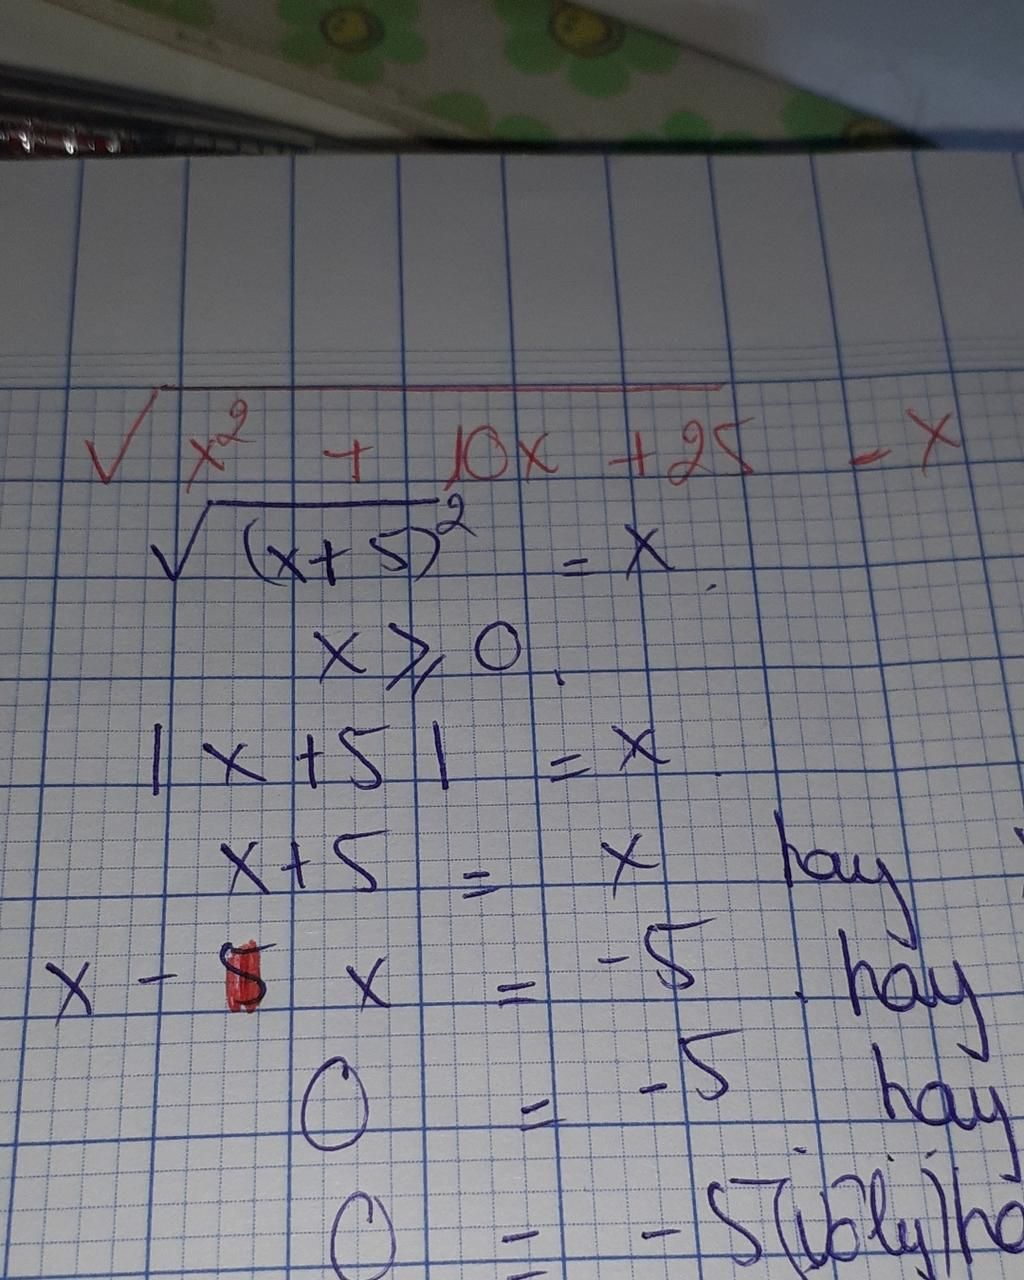 √x² + 10x + 25 = x
√(x + 5)² = x.
x ⩾ 0.
| x + 5 | = x
x + 5 = x hay
x - x = -5 hay
0 = -5 hay
0 = -5 (vô lý)